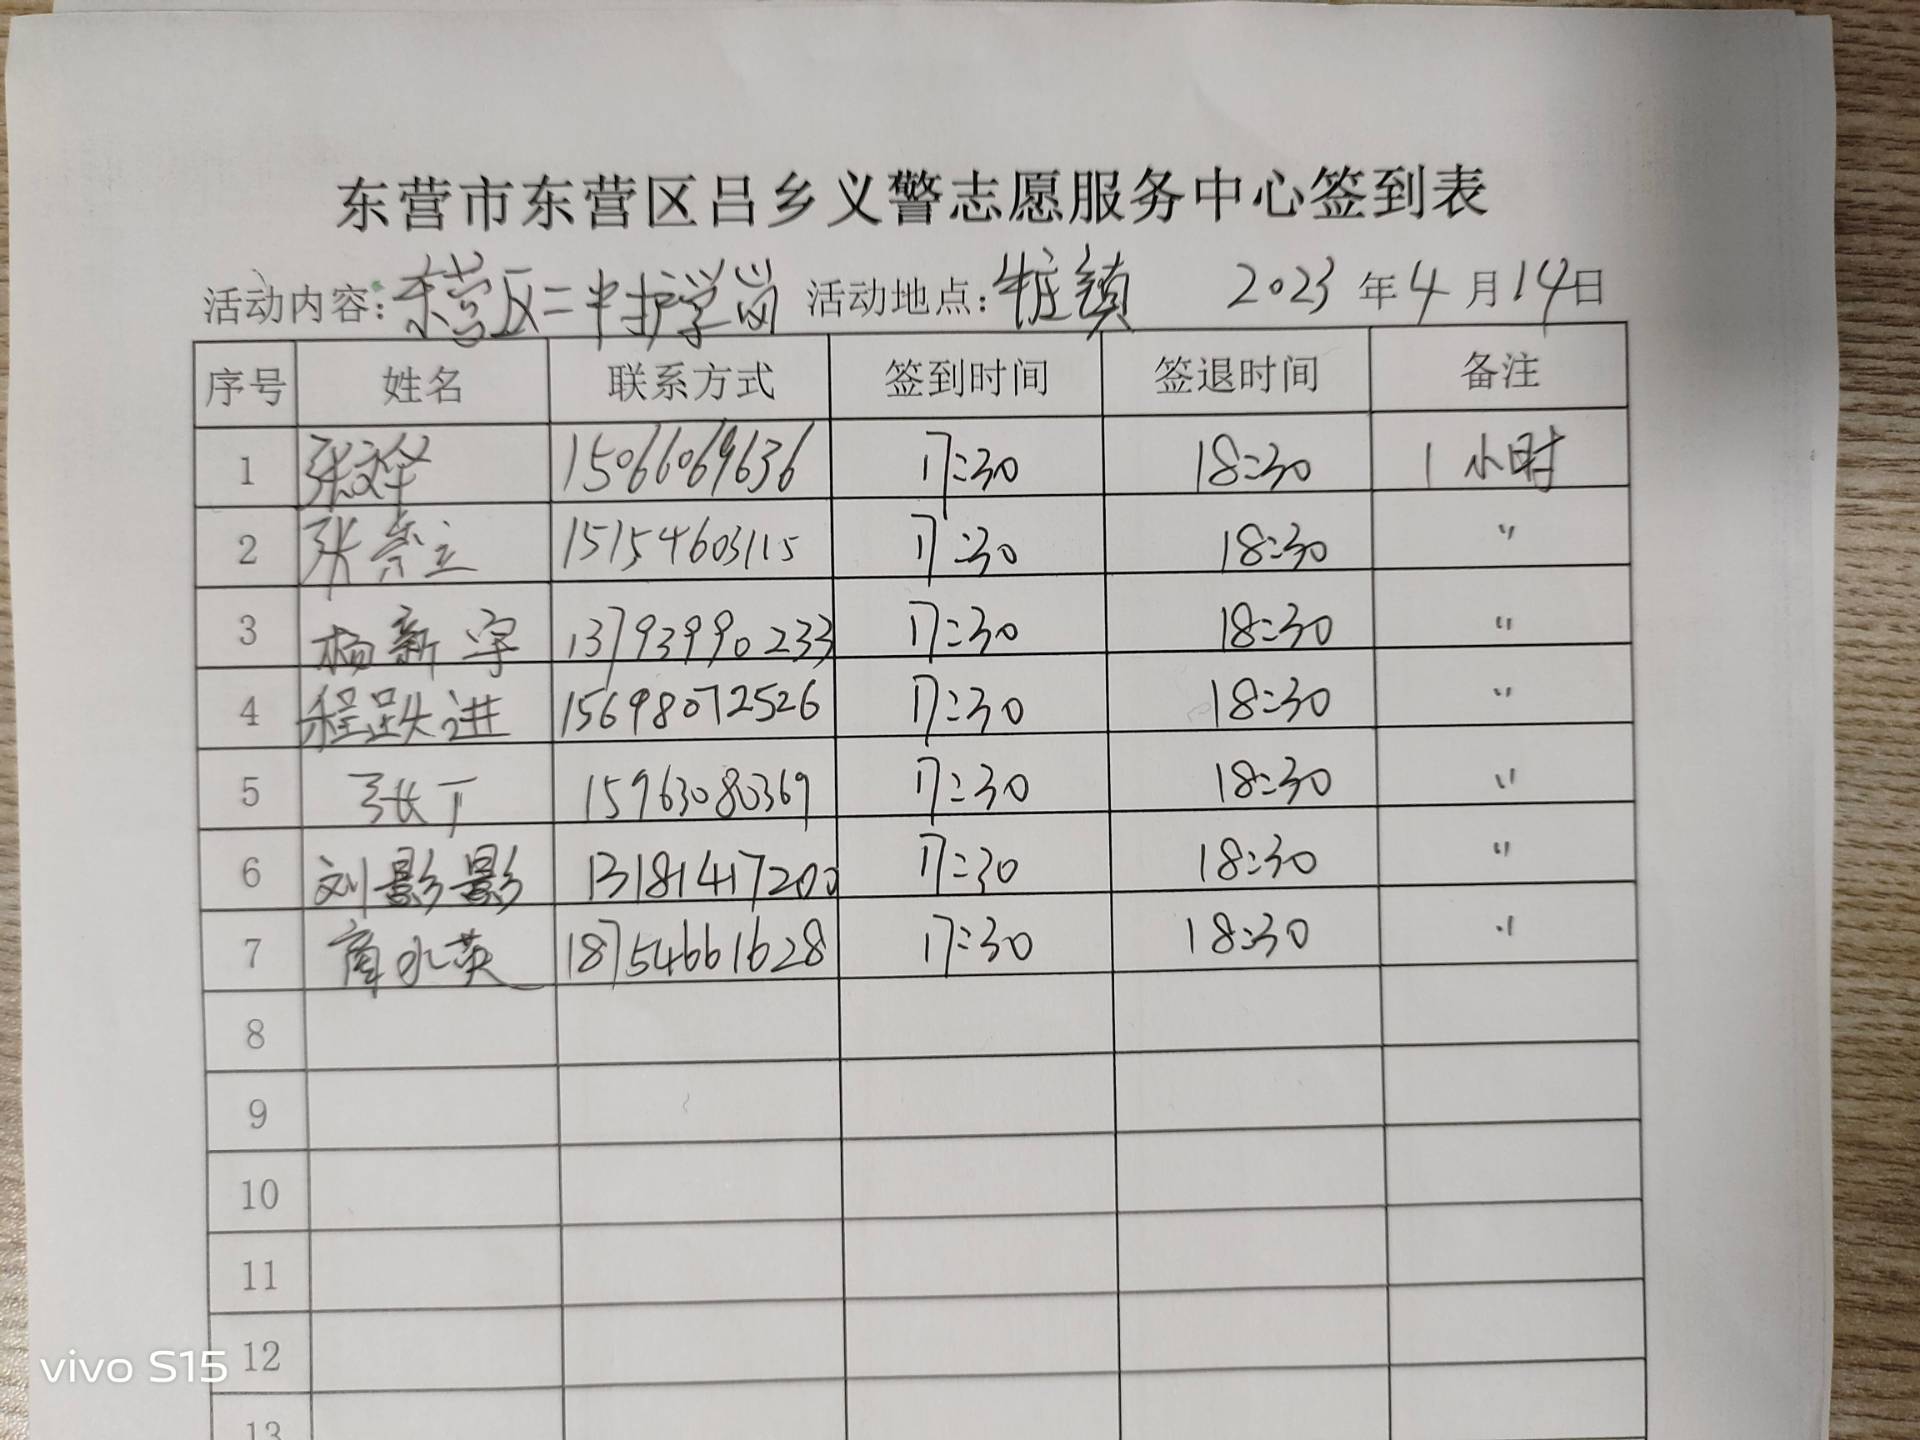 东营市东营区吕乡义警志愿服务中心签到表
活动内容:东营区二中护学岗 活动地点:牛庄镇 2023年4月14日
序号 姓名 联系方式 签到时间 签退时间 备注
1 张文华 15066069636 17:30 18:30 1小时
2 张崇立 15154603115 17:30 18:30 〃
3 杨新宇 13793990233 17:30 18:30 〃
4 程跃进 15698072526 17:30 18:30 〃
5 张丁 15963080369 17:30 18:30 〃
6 刘影影 13181417200 17:30 18:30 〃
7 商水英 18754661628 17:30 18:30 〃
8
9
10
11
12
13
vivo S15